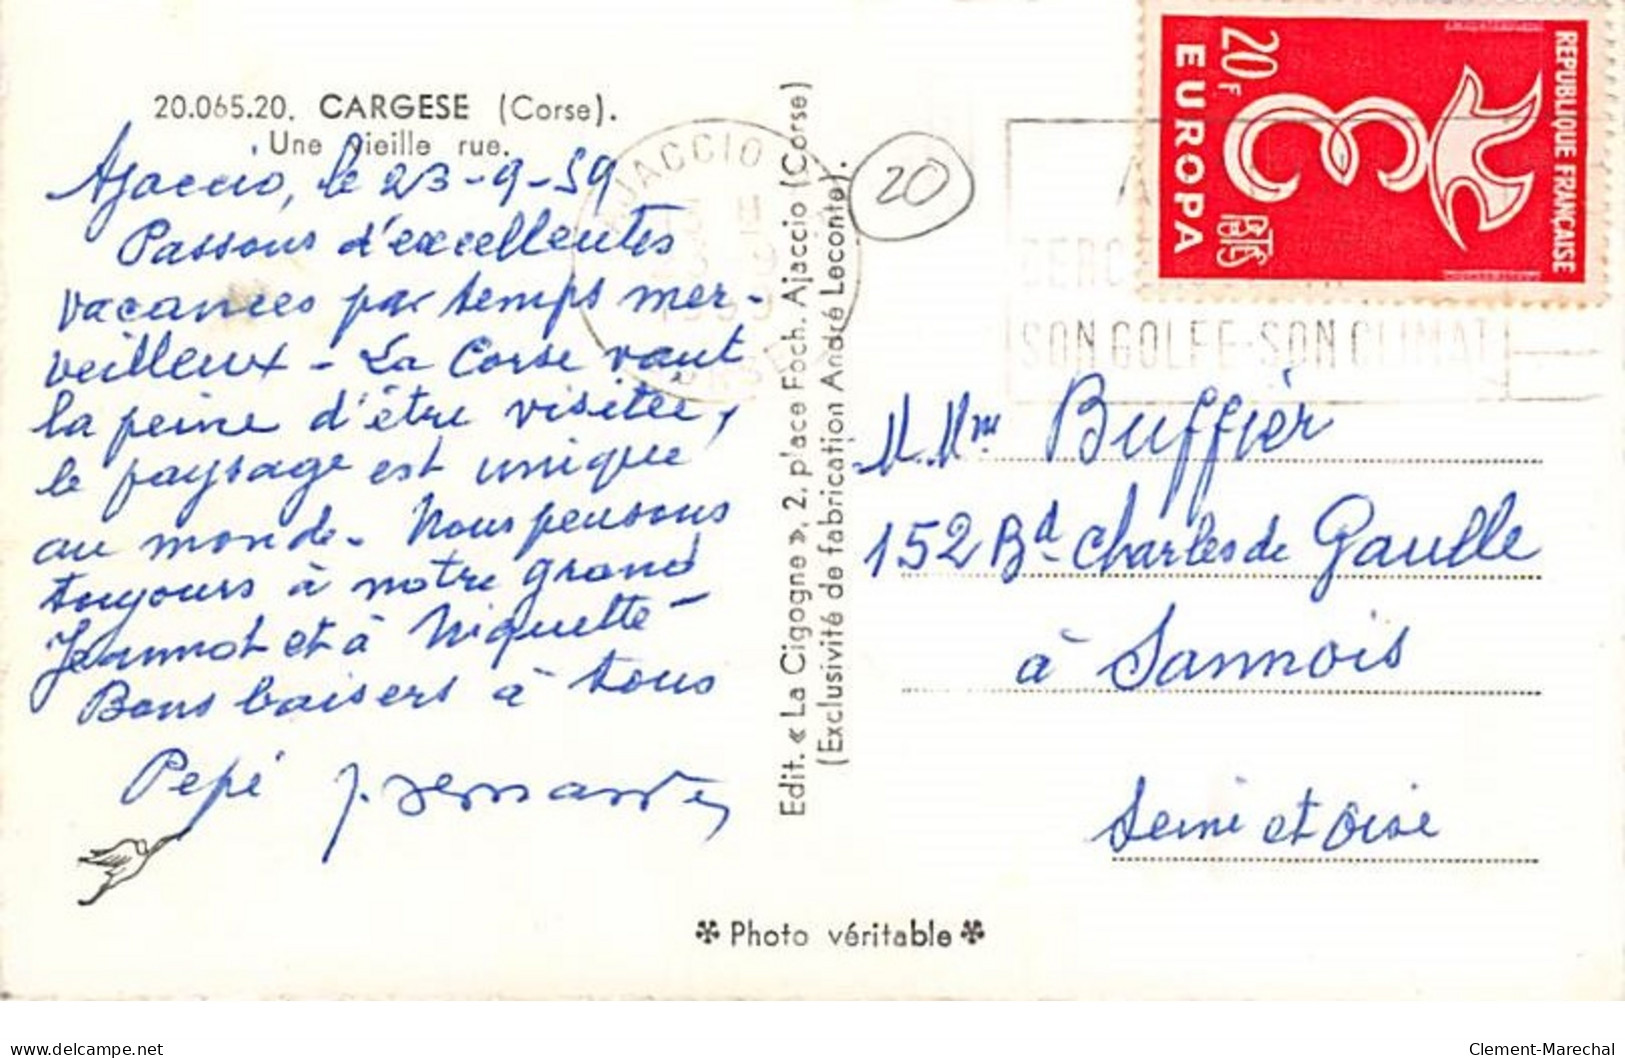 20.065.20. CARGESE (Corse).
Une vieille rue.
Ajaccio, le 23-9-59
Passons d'excellentes
vacances par temps mer-
veilleux - La Corse vaut
la peine d'être visitée,
le paysage est unique
au monde. Nous pensons
toujours à notre grand
Jeannot et à Niquette -
Bons baisers à tous
Pépé J.
Edit. « La Cigogne », 2, place Foch. Ajaccio (Corse)
(Exclusivité de fabrication André Leconte).
AJACCIO
1959
CORSE
20
SON GOLFE-SON CLIMAT
REPUBLIQUE FRANÇAISE
20F
POSTES
EUROPA
M. Mme Buffier
152 Bd Charles de Gaulle
à Sannois
Seine et Oise
Photo véritable
delcampe.net
Clement-Marechal